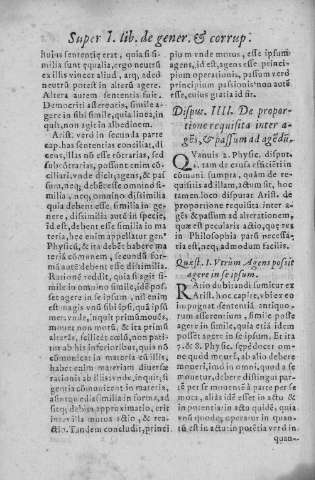 Super I. lib. de gener. & corrup.
huius sententię erat, quia si si-
milia sunt ęqualia, ergo neutrũ
ex illis vincet aliud, atq, adeò
neutrũ potest in alterũ agere.
Altera autem sententia fuit,
Democriti asserentis, simile a-
gere in sibi simile, quia linea, in
quit, non agit in albedinem.
Arist. verò in secunda parte
cap. has sententias conciliat, di
cens, illas nõ esse cõrarias, sed
subcõtrarias, possunt enim cõ-
ciliari. vnde dicit, agens, & pas-
sum, neq; debẽt esse omnino si-
milia, neq; omnino dissimilia
quia debent esse similia in ge-
nere, dissimilia autẽ in specie,
id est, debent esse similia in ma
teria, hec enim appellatur gen.
Physicũ, & ita debẽt habere ma
teriã cõmunem, secundũ for-
mã autẽ debent esse dissimilia.
Rationẽ reddit, quia si agit si-
mile in omnino simile, idẽ pos-
set agere in se ipsum, nil enim
est magis vnũ sibi ipsi, quã ipsũ
met: vnde, inquit primũ moues,
amouet non mouẽt, & ita primũ
alterãs, scilicet cœlũ, non pati-
tur ab his inferioribus, quia nõ
cõmunicat in materia cũ illis,
habet enim materiam diuersæ
rationis ab illis vnde, inquit; si
gentia cõmunicent in materia,
sintque dissimilia in forma, ad
seq; debitam approximatio, erit
inter illa mutua actio, & rea-
ctio. Tandem concludit, princi
pium vnde motus, esse ipsum
agens, id est, agens esse princi-
pium operationis, passum verò
principium passionis: non autẽ
esse, cuius gratia id fit.
Disput. IIII. De propor-
tione requisita inter a-
gẽs, & passum ad agẽdũ.
QVamuis 2. Physic. disput.
1. tam de causa efficiẽti in
cõmuni, quàm de requi-
sitis ad illam, actum sit, hoc
tamen loco disputat Arist. de
proportione requisita inter a-
gẽs & passum ad alterationem,
quæ est peculiaris actio, quę res
in Philosophia parũ necessa-
ria est, neq; admodum facilis.
Quæst. I. Vtrùm Agens possit
agere in se ipsum.
RAtio dubitandi sumitur ex
Arist. hoc capite, vbi ex eo
impugnat sententiã antiquo-
rum asserentium, simile posse
agere in simile, quia etiã idem
posset agere in se ipsum. Et ita
7. & 8. Physic. sępè docet om-
ne quod mouet̃, ab alio debere
moueri, imò in omni, quod a se
mouetur, debere distingui par-
tẽ per se mouentẽ à parte per se
mota, aliàs idẽ esset in actu &
in potentia: in actu quidẽ, quia
vnũ quodq; operatur, in quan-
tũ est actu: in potẽtia verò in
quan-